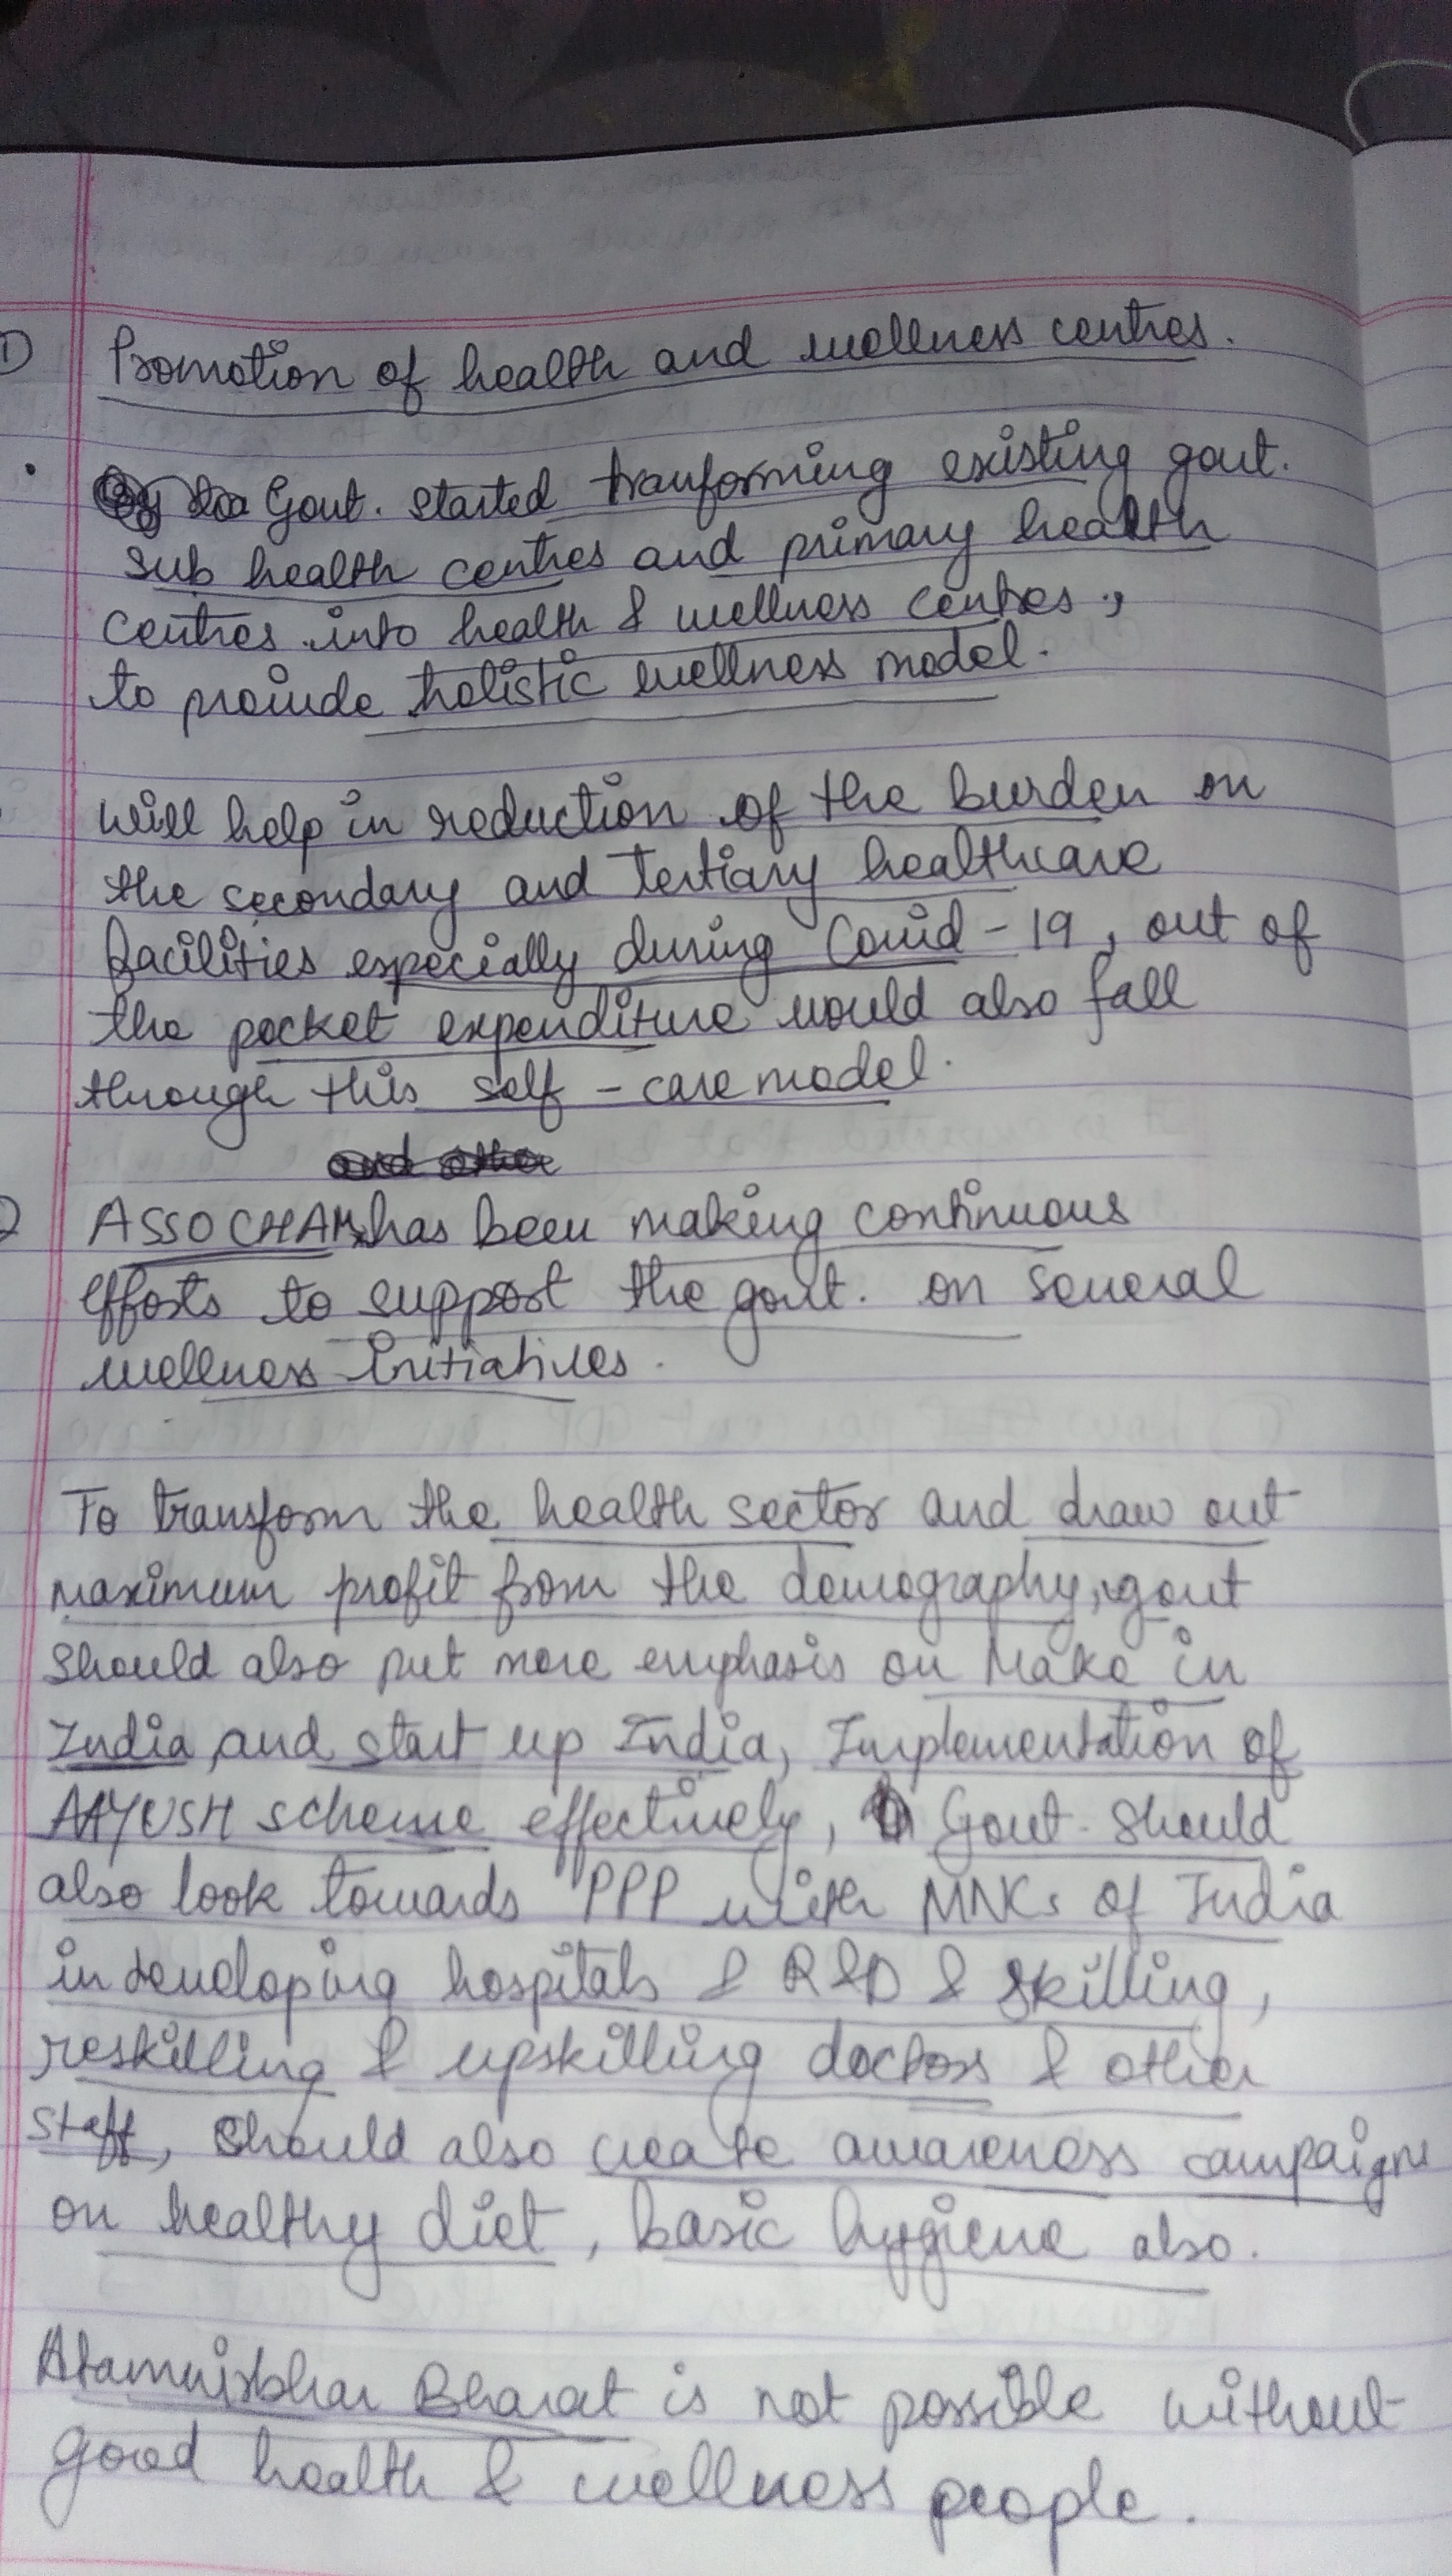 ① Promotion of health and wellness centres.
• Govt. started tranforming existing govt.
sub health centres and primary health
centres into health & wellness centres,
to provide holistic wellness model.
Will help in reduction of the burden on
the secondary and Tertiary healthcare
facilities especially during Covid-19, out of
the pocket expenditure would also fall
through this self-care model.
ASSOCHAM has been making continuous
efforts to support the govt. on several
wellness initiatives.
To transform the health sector and draw out
maximum profit from the demography, govt
should also put more emphasis on Make in
India, and start up India, Implementation of
AAYUSH scheme effectively, Govt. should
also look towards PPP with MNCs of India
in developing hospitals & R&D & skilling,
reskilling & upskilling doctors & other
staff, should also create awareness campaigns
on healthy diet, basic hygiene also.
Atamnirbhar Bharat is not possible without
good health & wellness people.